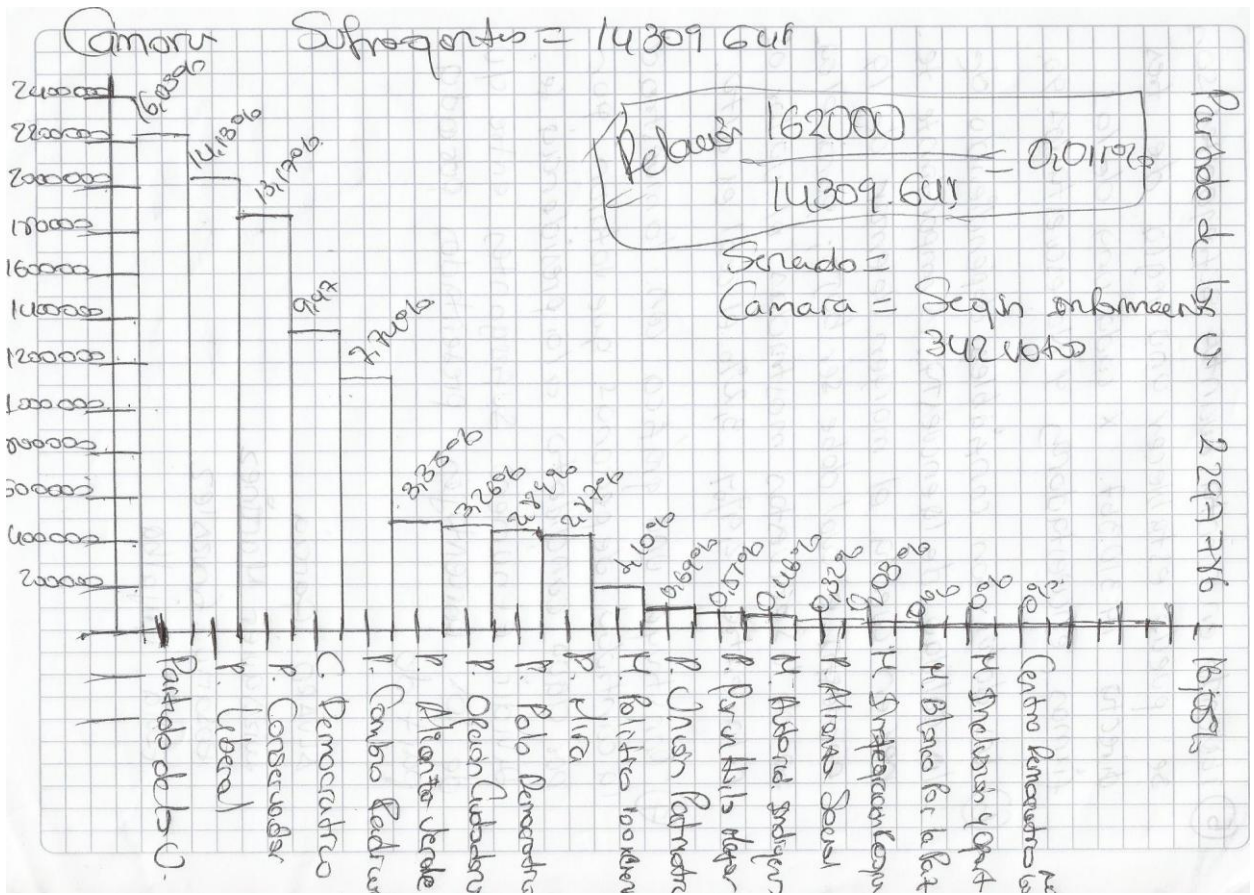 Camara Sufragantes = 14309.641
Relación 162000
14309.641
= 0,011%
Senado =
Camara = Según
342 votos
2400000
2200000
2000000
1800000
1600000
1400000
1200000
1000000
400000
200000
14,13%
13,17%
9,47
7,74%
3,35%
3,26%
2,89%
2,87%
0,69%
0,57%
0,46%
0,32%
Partido de la U.
P. Liberal
P. Conservador
C. Democratico
P. Cambio Radical
P. Alianza Verde
P. Opción Ciudadana
P. Polo Democratico
P. Mira
M. Politico 100x100
P. Unión Patriotica
P. Por un Huila Mejor
M. Autorid Indigen
P. Alianza Social
M. Integracion Regio
M. Blanco Por la Paz
M. Inclusión y Oport
Centro Democratico
Partido de la U 2297786 16,05%